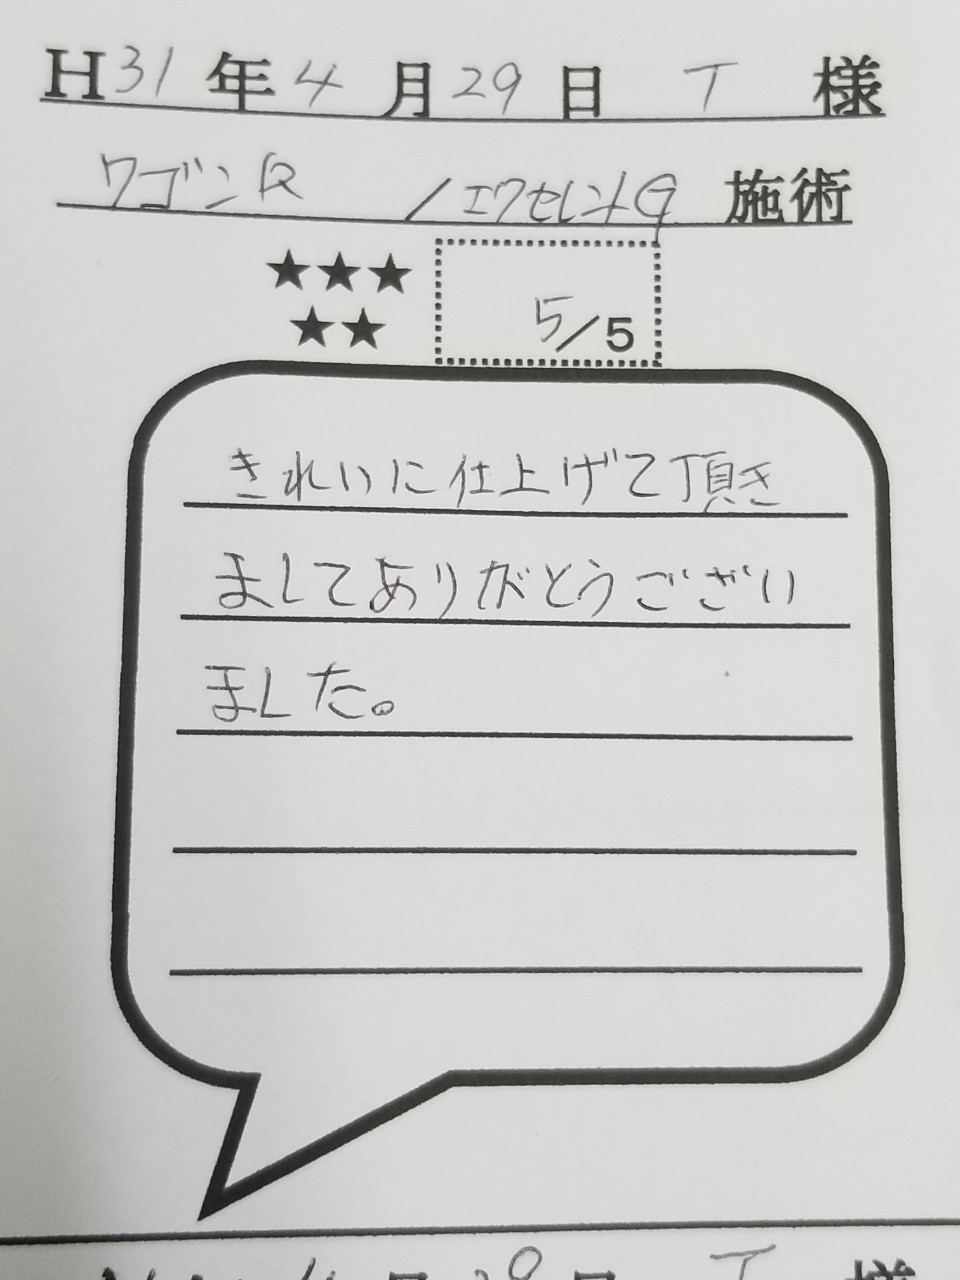 H31年4月29日 T 様
ワゴンR /エクセレントG 施術
★★★
★★
5/5
きれいに仕上げて頂き
ましてありがとうござい
ました。